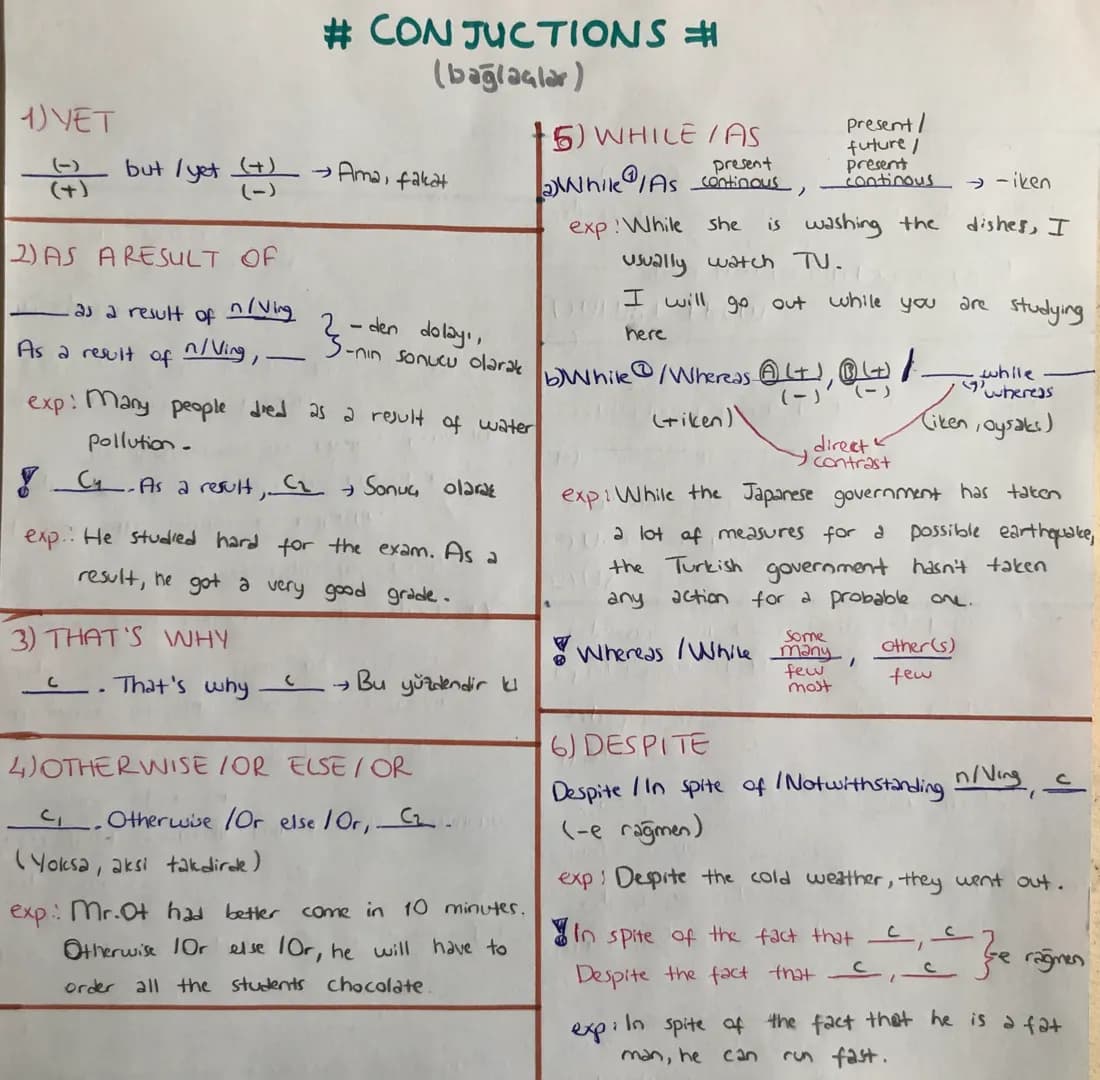 # CONJUCTIONS #
(bağlaçlar)
1) YET
(-) but / yet (+) → Ama, fakat
(+) (-)
2) AS A RESULT OF
____ as a result of n/Ving } -den dolayı,
As a result of n/Ving, ____ -nın sonucu olarak
exp: Many people died as a result of water
pollution.
! C1. As a result, C2 → Sonuç olarak
exp: He studied hard for the exam. As a
result, he got a very good grade.
3) THAT'S WHY
c . That's why c → Bu yüzdendir ki
4) OTHERWISE / OR ELSE / OR
C1. Otherwise / Or else / Or, C2.
(Yoksa, aksi takdirde)
exp: Mr.Ot had better come in 10 minutes.
Otherwise / Or else / Or, he will have to
order all the students chocolate.
5) WHILE / AS
present /
future /
present present
a) While① / As continous, continous → -iken
exp: While she is washing the dishes, I
usually watch TV.
I will go out while you are studying
here
b) While② / Whereas Ⓐ (+), Ⓑ (+) / ____ while ____
(-) (-) whereas
(+iken) (iken, oysaki)
direct
contrast
exp: While the Japanese government has taken
a lot of measures for a possible earthquake,
the Turkish government hasn't taken
any action for a probable one.
some
! Whereas / While many, other(s)
few few
most
6) DESPITE
Despite / In spite of / Notwithstanding n/Ving, c
(-e rağmen)
exp: Despite the cold weather, they went out.
! In spite of the fact that c, c } -e rağmen
Despite the fact that c, c
exp: In spite of the fact that he is a fat
man, he can run fast.